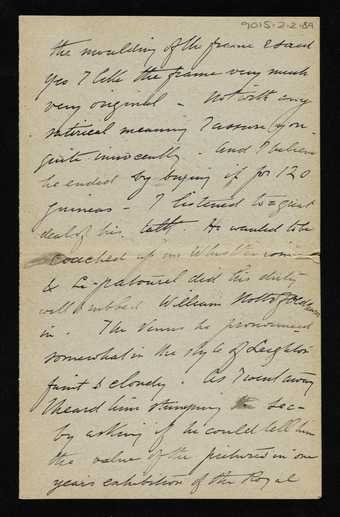 9015-2-2-89
the moulding of the frame & said
yes I like the frame very much
very original – Not with any
satirical meaning I assure you –
quite innocently. And I believe
he ended by buying it for 120
guineas – I listened to a great
deal of his talk. He wanted to be
coached up on Whistler
& Le-patourel did his duty
well & rubbed William Stott of Oldham
in. The Venus he pronounced
somewhat in the style of Leighton
faint & cloudy. As I went away
I heard him stumping the Sec-
by asking if he could tell him
the value of the pictures in one
years exhibition of the Royal